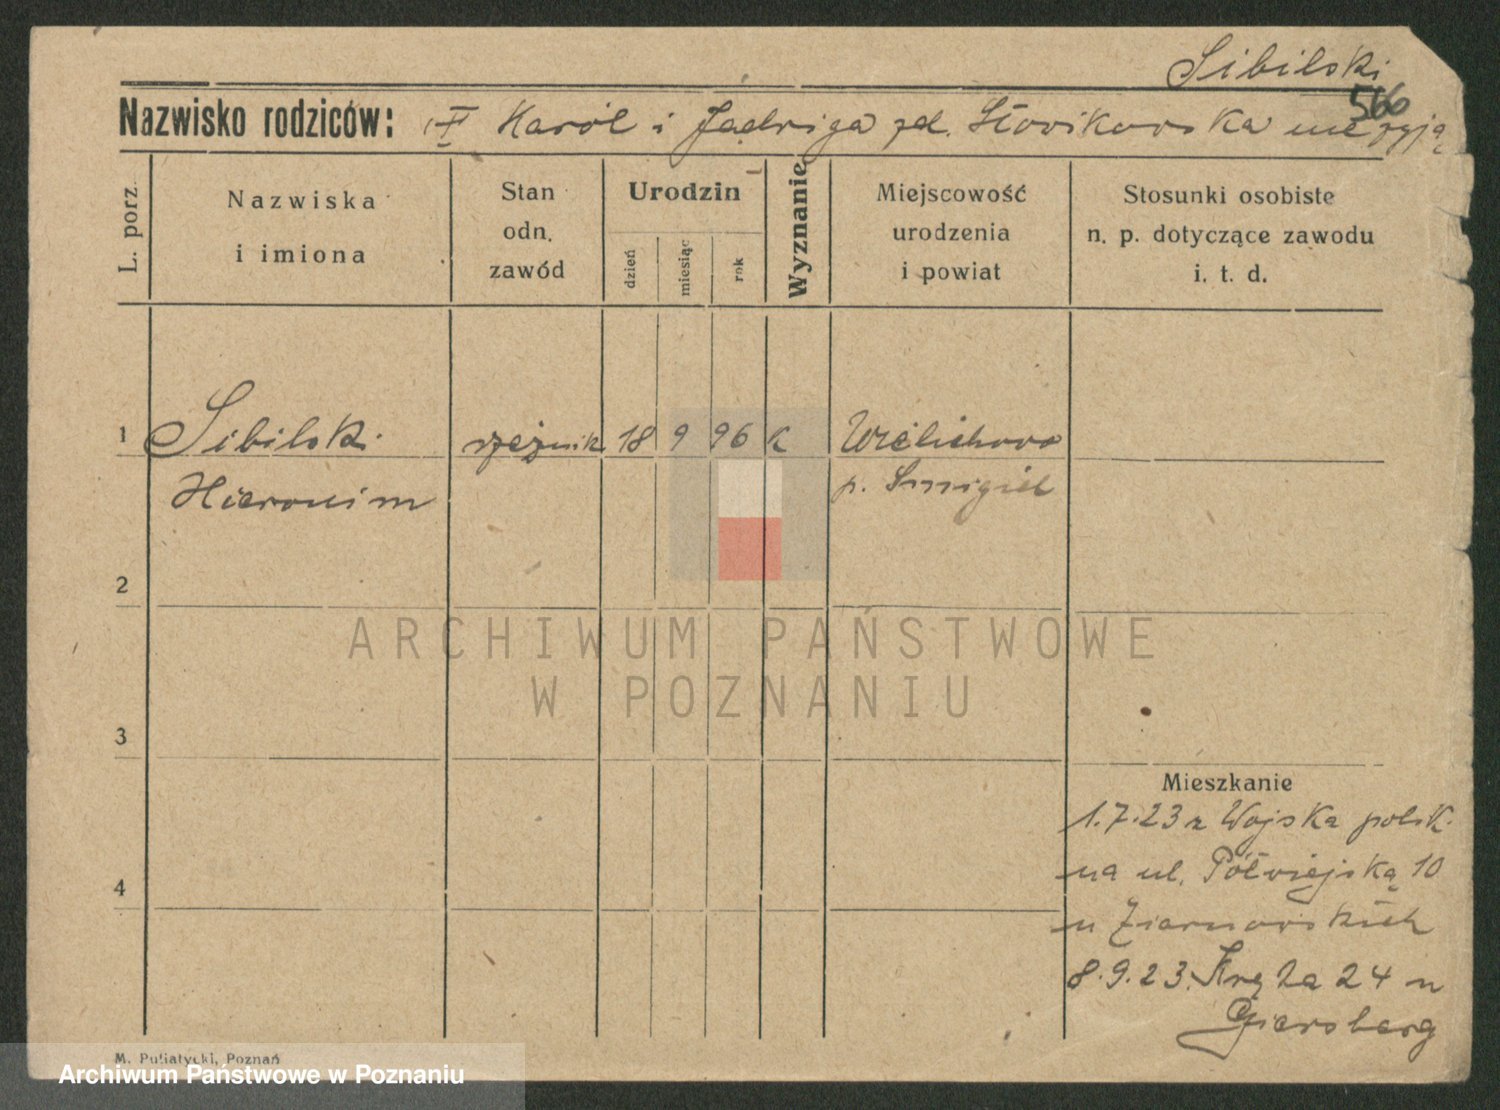 Sibilski
566
Nazwisko rodziców: Karól i Jadwiga zd. Słovikovska nie żyją
L. porz.
Nazwiska
i imiona
Stan
odn.
zawód
Urodzin
dzień
miesiąc
rok
Wyznanie
Miejscowość
urodzenia
i powiat
Stosunki osobiste
n. p. dotyczące zawodu
i. t. d.
1 Sibilski rzeźnik 18 9 96 K Wielichovo
Hieronim p. Smigiel
2
ARCHIWUM PAŃSTWOWE
W POZNANIU
3
Mieszkanie
1.7.23 z Wojska polsk.
na ul. Półwiejską 10
4
u Ziarnovskich
8.9.23. Kręta 24 u
Giersberg
M. Putiatycki, Poznań
Archiwum Państwowe w Poznaniu